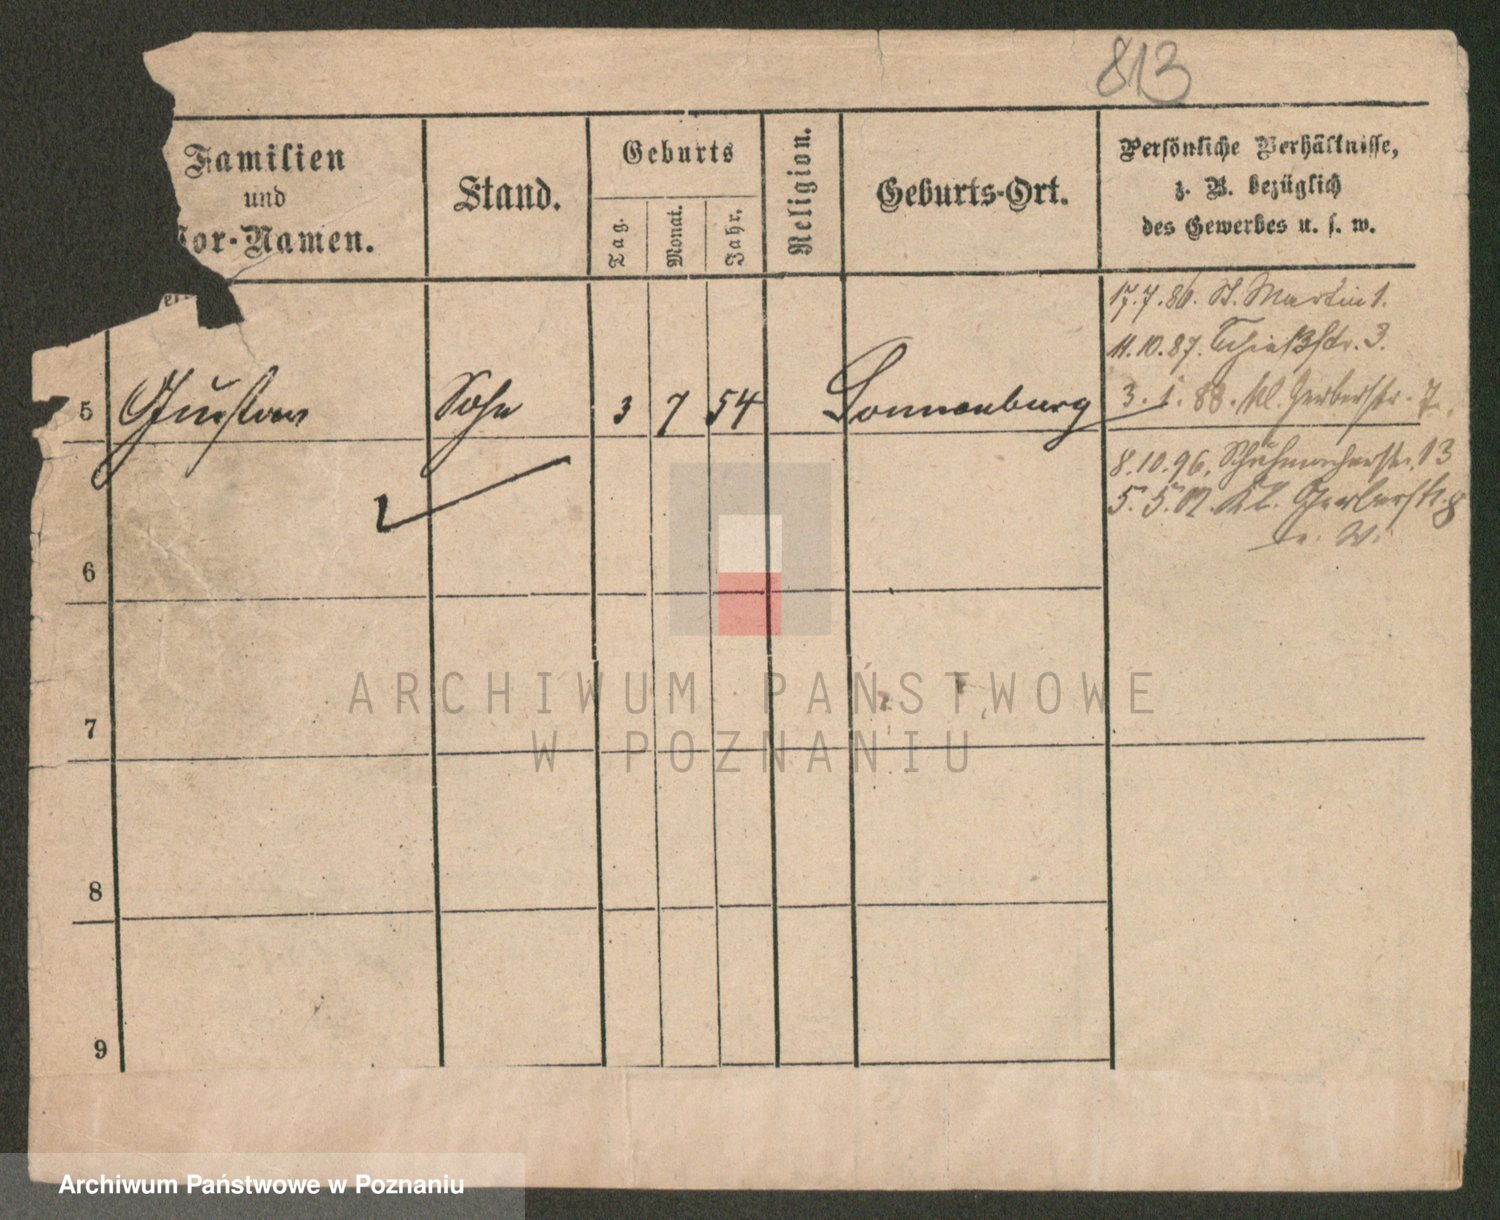 813
Familien
und
Vor-Namen.
Stand.
Geburts
Tag.
Monat.
Jahr.
Religion.
Geburts-Ort.
Persönliche Verhältnisse,
z. B. bezüglich
des Gewerbes u. s. w.
17.7.86. St. Martin 1.
11.10.87. Schießstr. 3.
5 Gustav Sohn 3 7 54 Sonnenburg
3.1.88. Kl. Gerberstr. 7.
8.10.96. Schuhmacherstr. 13
5.5.02. Kl. Gerberstr. 8
6
7
8
9
ARCHIWUM PAŃSTWOWE
W POZNANIU
Archiwum Państwowe w Poznaniu